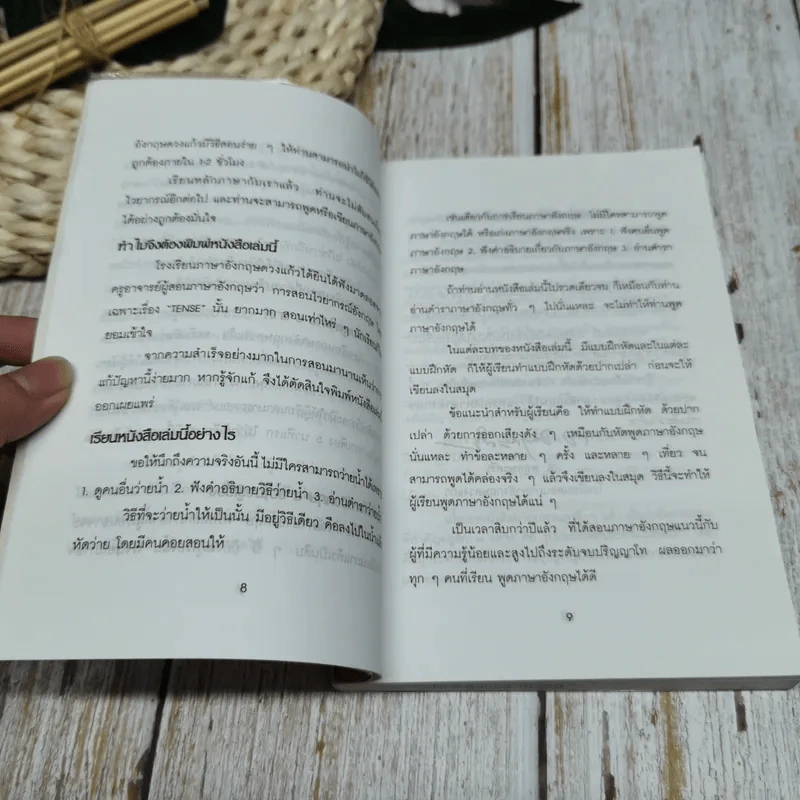 อังกฤษดวงแก้วมีวิธีสอนง่าย ๆ ให้ท่านสามารถนำไปใช้
ถูกต้องภายใน 1-2 ชั่วโมง
เรียนหลักภาษากับเราแล้ว ท่านจะไม่
ไวยากรณ์อีกต่อไป และท่านจะสามารถพูดหรือเขียนภาษาอังกฤษ
ได้อย่างถูกต้องมั่นใจ
ทำไมจึงต้องพิมพ์หนังสือเล่มนี้
โรงเรียนภาษาอังกฤษดวงแก้วได้ยินได้ฟังมาตลอด
ครูอาจารย์ผู้สอนภาษาอังกฤษว่า การสอนไวยากรณ์อังกฤษ
เฉพาะเรื่อง "TENSE" นั้น ยากมาก สอนเท่าไหร่ ๆ นักเรียน
ยอมเข้าใจ
จากความสำเร็จอย่างมากในการสอนมานานเห็นว่า
แก้ปัญหานี้ง่ายมาก หากรู้จักแก้ จึงได้ตัดสินใจพิมพ์หนังสือ
ออกเผยแพร่
เรียนหนังสือเล่มนี้อย่างไร
ขอให้นึกถึงความจริงอันนี้ ไม่มีใครสามารถว่ายน้ำได้
1. ดูคนอื่นว่ายน้ำ 2. ฟังคำอธิบายวิธีว่ายน้ำ 3. อ่านตำราว่ายน้ำ
วิธีที่จะว่ายน้ำให้เป็นนั้น มีอยู่วิธีเดียว คือลงไปในน้ำ
หัดว่าย โดยมีคนคอยสอนให้
8
เช่นเดียวกับการเรียนภาษาอังกฤษ ไม่มีใครสามารถพูด
ภาษาอังกฤษได้ หรือเก่งภาษาอังกฤษจริง เพราะ 1. ฟังคนอื่นพูด
ภาษาอังกฤษ 2. ฟังคำอธิบายเกี่ยวกับภาษาอังกฤษ 3. อ่านตำรา
ภาษาอังกฤษ
ถ้าท่านอ่านหนังสือเล่มนี้ไปรวดเดียวจบ ก็เหมือนกับท่าน
อ่านตำราภาษาอังกฤษทั่ว ๆ ไปนั่นแหละ จะไม่ทำให้ท่านพูด
ภาษาอังกฤษได้
ในแต่ละบทของหนังสือเล่มนี้ มีแบบฝึกหัดและในแต่ละ
แบบฝึกหัด ก็ให้ผู้เรียนทำแบบฝึกหัดด้วยปากเปล่า ก่อนจะให้
เขียนลงในสมุด
ข้อแนะนำสำหรับผู้เรียนคือ ให้ทำแบบฝึกหัด ด้วยปาก
เปล่า ด้วยการออกเสียงดัง ๆ เหมือนกับหัดพูดภาษาอังกฤษ
นั่นแหละ ทำข้อละหลาย ๆ ครั้ง และหลาย ๆ เที่ยว จน
สามารถพูดได้คล่องจริง ๆ แล้วจึงเขียนลงในสมุด วิธีนี้จะทำให้
ผู้เรียนพูดภาษาอังกฤษได้แน่ ๆ
เป็นเวลาสิบกว่าปีแล้ว ที่ได้สอนภาษาอังกฤษแนวนี้กับ
ผู้ที่มีความรู้น้อยและสูงไปถึงระดับจบปริญญาโท ผลออกมาว่า
ทุก ๆ คนที่เรียน พูดภาษาอังกฤษได้ดี
9